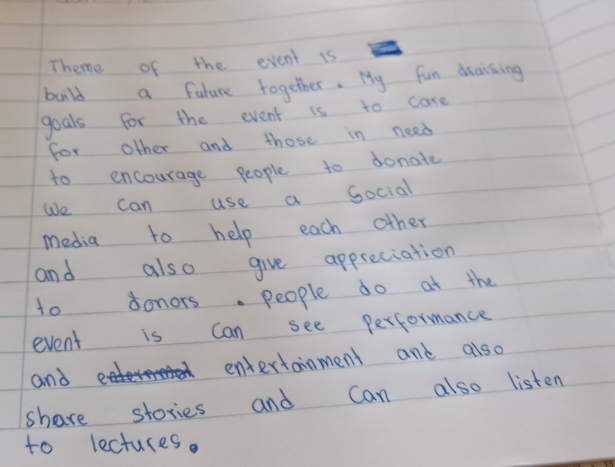 Theme of the event is
build a future together. My fun draising
goals for the event is to care
for other and those in need
to encourage people to donate
we can use a social
media to help each other
and also give appreciation
to donors. people do at the
event is can see performance
and entertainment and also
share stories and can also listen
to lectures.